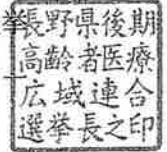 長野県後期
高齢者医療
広域連合
選挙長之印
挙